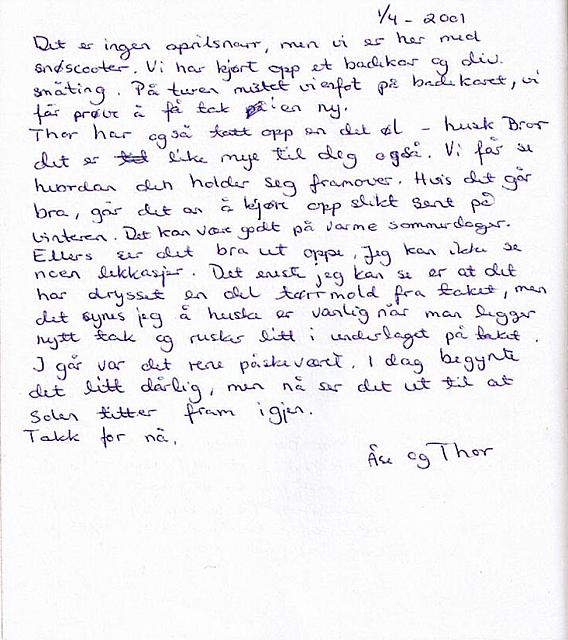 1/4 - 2001
Det er ingen aprilsnarr, men vi er her med
snøscooter. Vi har kjørt opp et badekar og div.
småting. På turen mistet vi en fot på badekaret, vi
får prøve å få tak i en ny.
Thor har også tatt opp en del øl - husk Bror
det er like mye til deg også. Vi får se
hvordan den holder seg framover. Hvis det går
bra, går det an å kjøre opp slikt sent på
vinteren. Det kan være godt på varme sommerdager.
Ellers ser det bra ut oppe. Jeg kan ikke se
noen lekkasjer. Det eneste jeg kan se er at det
har drysset en del tørrmold fra taket, men
det synes jeg å huske er vanlig når man legger
nytt tak og rusker litt i underlaget på taket.
I går var det rene påskeværet. I dag begynte
det litt dårlig, men nå ser det ut til at
solen titter fram igjen.
Takk for nå.
Åse og Thor